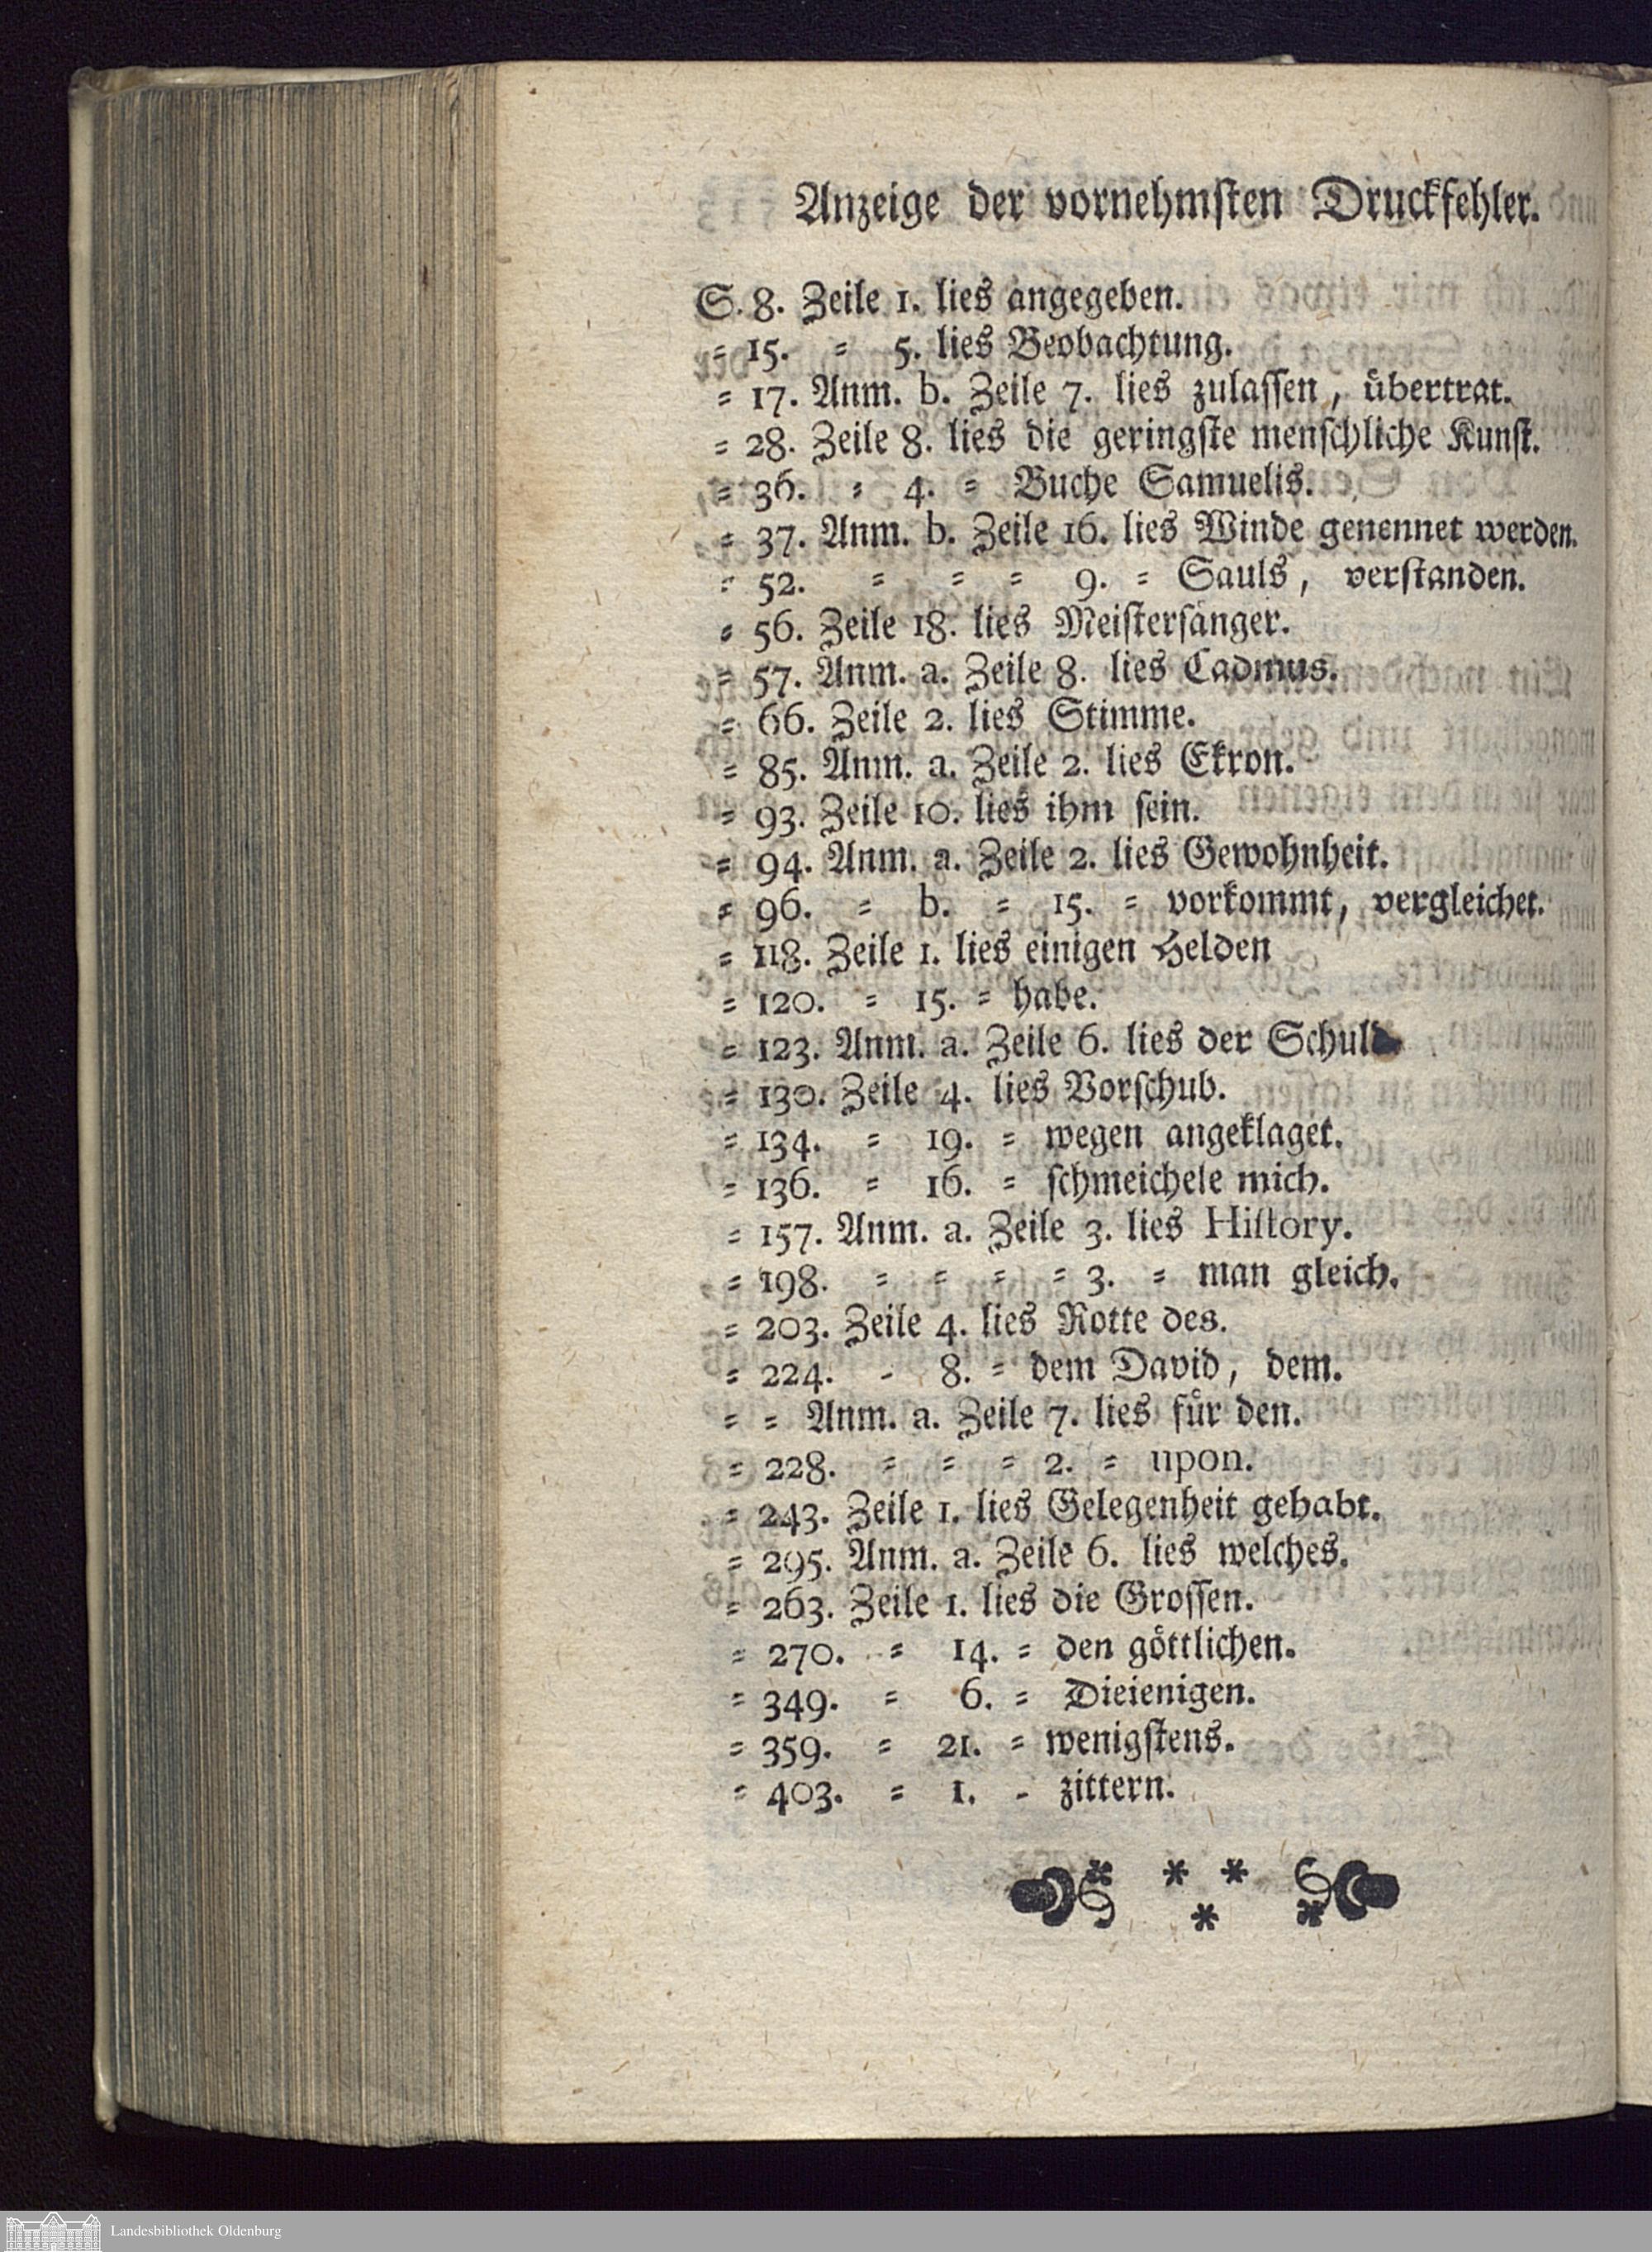 Anzeige der vornehmſten Druckfehler.
S. 8. Zeile 1. lies angegeben.
= 15. = 5. lies Beobachtung.
= 17. Anm. b. Zeile 7. lies zulaſſen, übertrat.
= 28. Zeile 8. lies die geringſte menſchliche Kunſt.
= 36. = 4. = Buche Samuelis.
= 37. Anm. b. Zeile 16. lies Winde genennet werden.
= 52. = = = 9. = Sauls, verſtanden.
= 56. Zeile 18. lies Meiſterſänger.
= 57. Anm. a. Zeile 8. lies Cadmus.
= 66. Zeile 2. lies Stimme.
= 85. Anm. a. Zeile 2. lies Ekron.
= 93. Zeile 10. lies ihm ſein.
= 94. Anm. a. Zeile 2. lies Gewohnheit.
= 96. = b. = 15. = vorkommt, vergleichet.
= 118. Zeile 1. lies einigen Helden
= 120. = 15. = habe.
= 123. Anm. a. Zeile 6. lies der Schuld
= 130. Zeile 4. lies Vorſchub.
= 134. = 19. = wegen angeklaget.
= 136. = 16. = ſchmeichele mich.
= 157. Anm. a. Zeile 3. lies Hiſtory.
= 198. = = = = 3. = man gleich.
= 203. Zeile 4. lies Rotte des.
= 224. - 8. = dem David, dem.
= = Anm. a. Zeile 7. lies für den.
= 228. = = = 2. = upon.
= 243. Zeile 1. lies Gelegenheit gehabt.
= 295. Anm. a. Zeile 6. lies welches.
= 263. Zeile 1. lies die Groſſen.
= 270. = 14. = den göttlichen.
= 349. = 6. = Dieienigen.
= 359. = 21. = wenigſtens.
= 403. = 1. - zittern.
Landesbibliothek Oldenburg